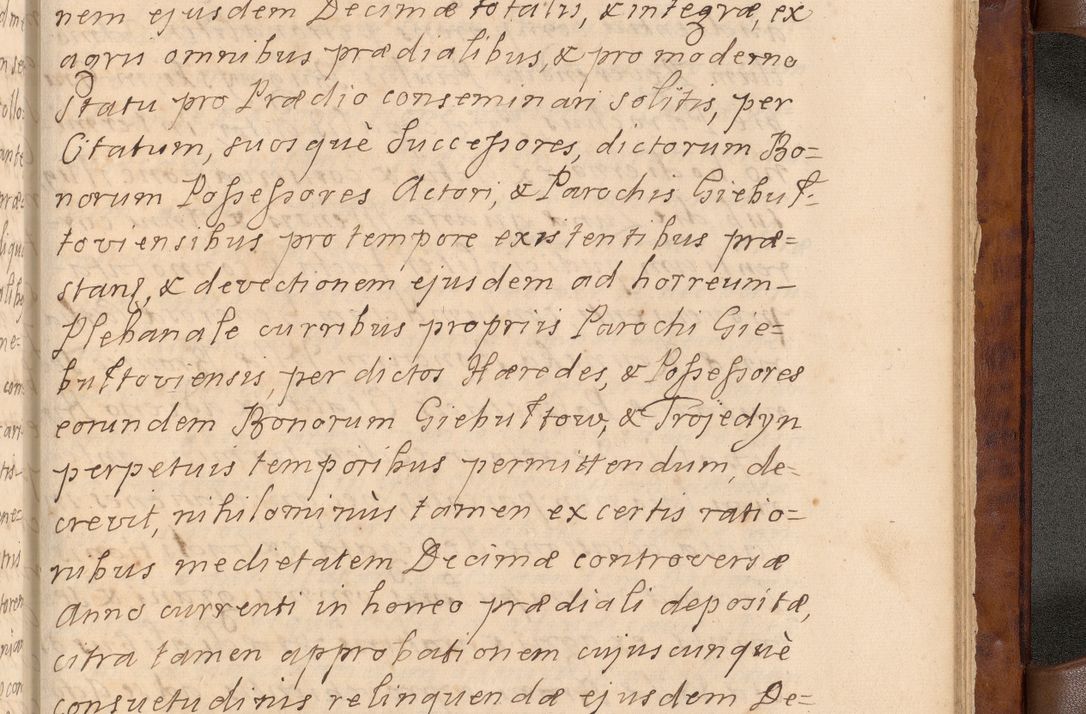 nem ejusdem Decimæ totalis, & integræ, ex
agris omnibus prædialibus, & pro moderno
Statu pro Prædio conseminari solitis, per
Citatum, suosquè Successores, dictorum Bo=
norum Possessores Actori, & Parochis Giebuł=
toviensibus pro tempore existentibus præ=
stan̄, & devectionem ejusdem ad horreum
Plebanale curribus propriis Parochi Gie=
bułtoviensis, per dictos Hæredes, & Possessores
eorundem Bonorum Giebułtow, & Trojedyn
perpetuis temporibus permittendum, de=
crevit, nihilominùs tamen ex certis ratio=
nibus medietatem Decimæ controversæ
Anno currenti in horreo prædiali depositæ,
citra tamen approbationem cujuscunquè
consuetudinis relinquendæ ejusdem De=